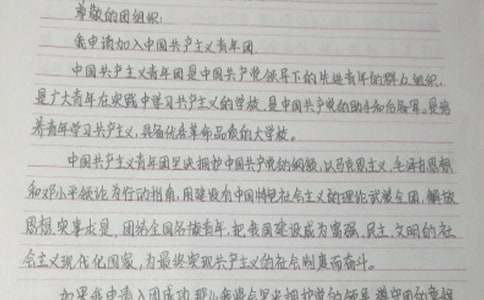 尊敬的团组织:
我申请加入中国共产主义青年团.
中国共产主义青年团是中国共产党领导下的先进青年的群众组织,
是广大青年在实践中学习共产主义的学校,是中国共产党的助手和后备军.是培
养青年学习共产主义,具备优在革命品质的大学校。
中国共产主义青年团坚决拥护中国共产党的纲领,以马克思主义,毛泽东思想
和邓小平理论为行动指南,用建设有中国特色社会主义的理论武装全团,解放
思想,实事求是,团结全国各族青年,把我国建设成为富强,民主,文明的社
会主义现代化国家,为最终实现共产主义的社会制度而奋斗。
如果我申请入团成功,那么我将会坚决拥护党的领导,遵守团的章程